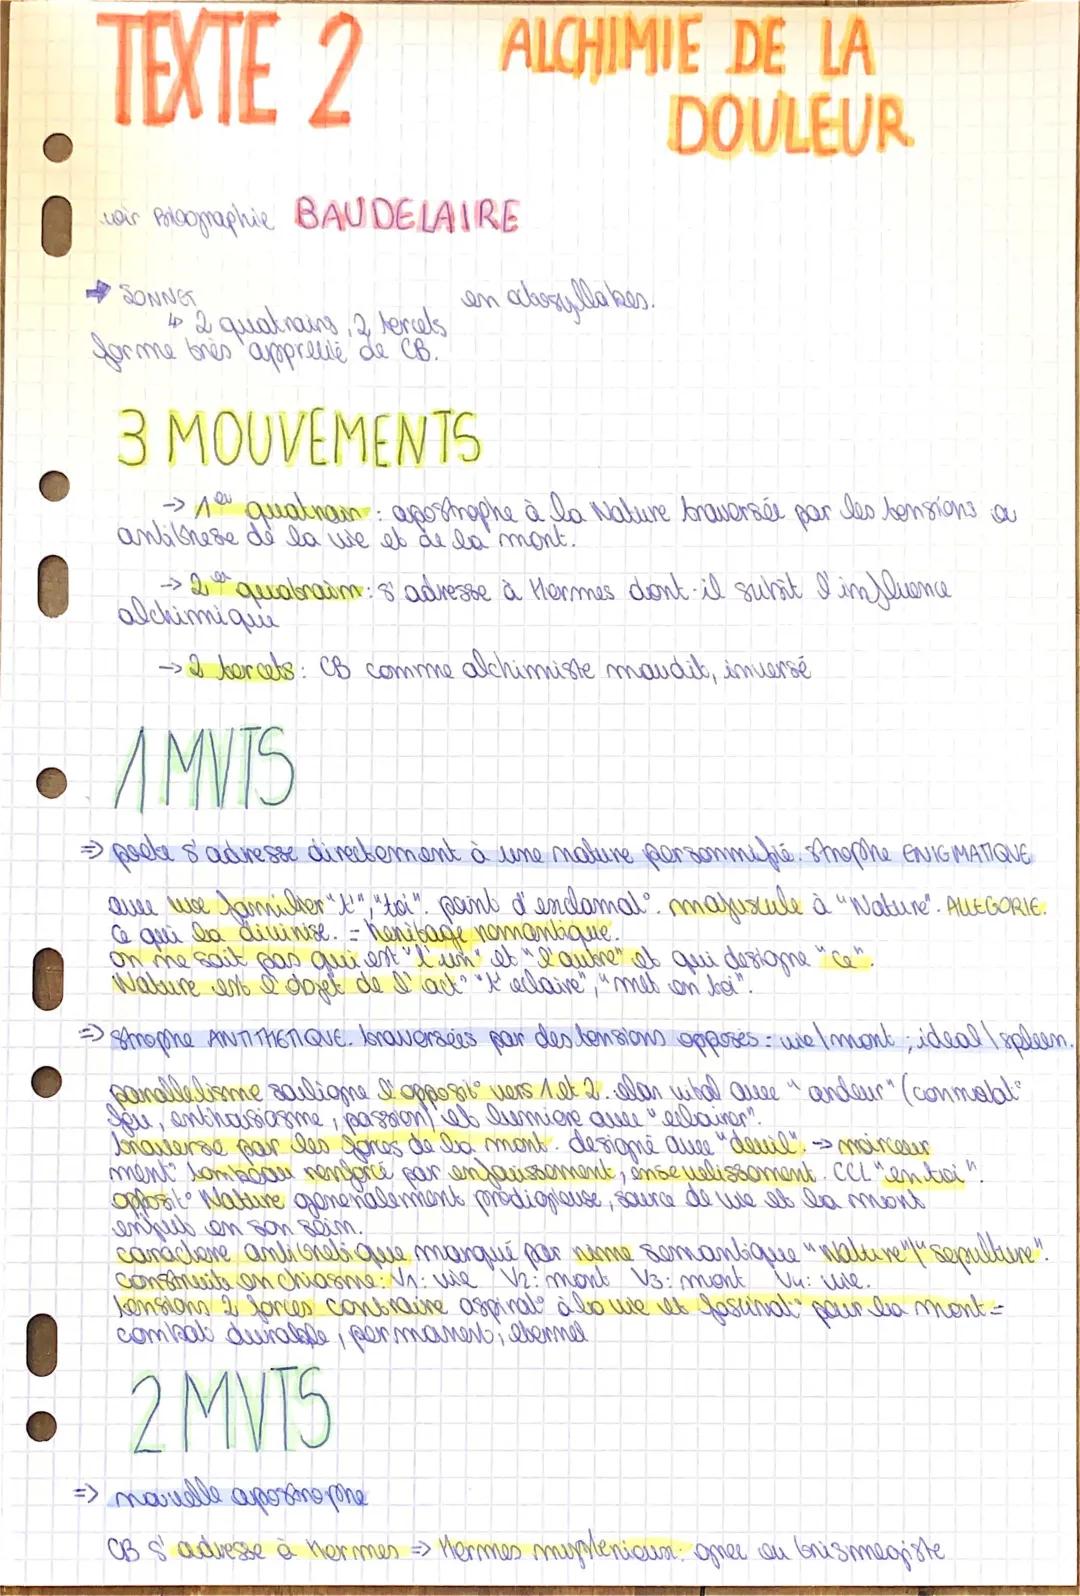 TEXTE 2
ALCHIMIE DE LA
DOULEUR
voir Biographie BAUDELAIRE
→ SONNET en octosyllabes.
↳ 2 quatrains, 2 tercets
forme très apprecié de CB.
3 MOUVEMENTS
→ 1er quatrain : apostrophe à la Nature traversée par les tensions ou
antithese de la vie et de la mort.
→ 2er quatraim : s'adresse à Hermes dont il subit l'influence
alchimique
→ 2 tercets : CB comme alchimiste maudit, inversé
1 MVTS
⇒ poete s'adresse directement à une nature personnifié. strophe ENIGMATIQUE
avec use familier "t'", "toi". point d'exclamat°. majuscule à "Nature". ALLEGORIE.
ce qui la divinise. = heritage romantique.
on ne sait pas qui est "l'un" et "l'autre" et qui designe "ce".
Nature est l'objet de l'act° "t'eclaire", "met en toi".
⇒ strophe ANTITHETIQUE. traversées par des tensions opposés : vie/mort ; ideal/spleen.
parallelisme souligne l'opposit° vers 1 et 2. elan vital avec "ardeur" (connotat°
feu, enthousiasme, passion) et lumiere avec "eclairer".
traverse par les forces de la mort. designé avec "deuil". → noirceur
ment° tombeau renforcé par enfouissement, ensevelissement. CCL "en toi".
opposit° Nature generalement prodigieuse, source de vie et la mort
enfouis en son sein.
caractere antithetique marqué par rime semantique "Nature"/"sepulture".
construits en chiasme : V1 : vie V2 : mort V3 : mort V4 : vie.
tensions 2 forces contraire aspirat° à la vie et fascinat° pour la mort =
combat durable, permanent, eternel
2 MVTS
⇒ nouvelle apostrophe
CB s'adresse à Hermes ⇒ Hermes mysterieux : grec ou trismegiste